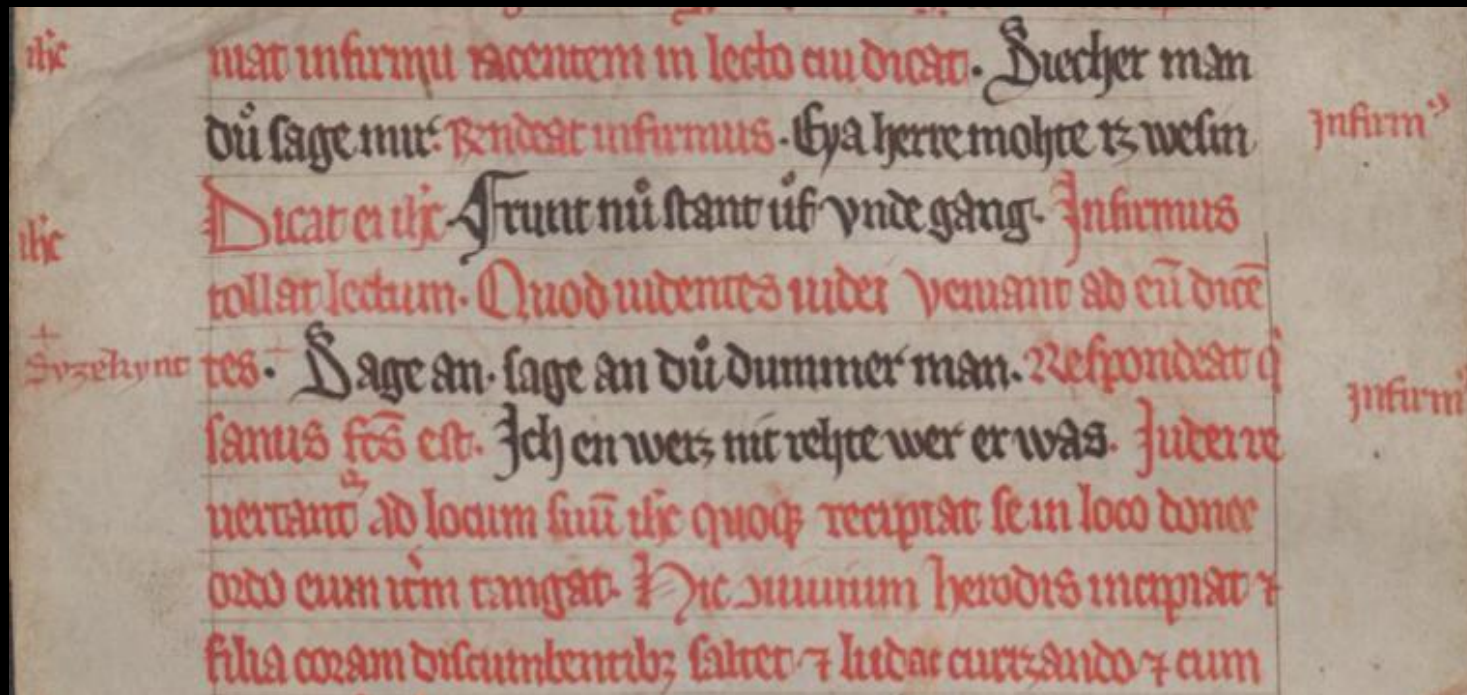 ihc
niat infirmū iacentem in lecto cui dicat. Siecher man
dů sage mir. Rñdeat infirmus. Eya herre mohte iz wesin
Infirm⁹
Dicat ei ihc Frunt nů stant ůf vnde gang. Infirmus
ihc
tollat lectum. Quod uidentes iudei veniant ad eū dicē
Svzekynt
tes. Sage an. sage an dů dummer man. Respondeat q
Infirm⁹
sanus fc̄s est. Ich en weiz nit rehte wer er was. Iudei re
uertant ad locum suū ihc quoqꝫ recipiat se in loco donec
ordo eum itm tangat. Hic uiuium herodis incipiat ⁊
filia coram discumbentibꝫ saltet ⁊ ludat curizando ⁊ cum